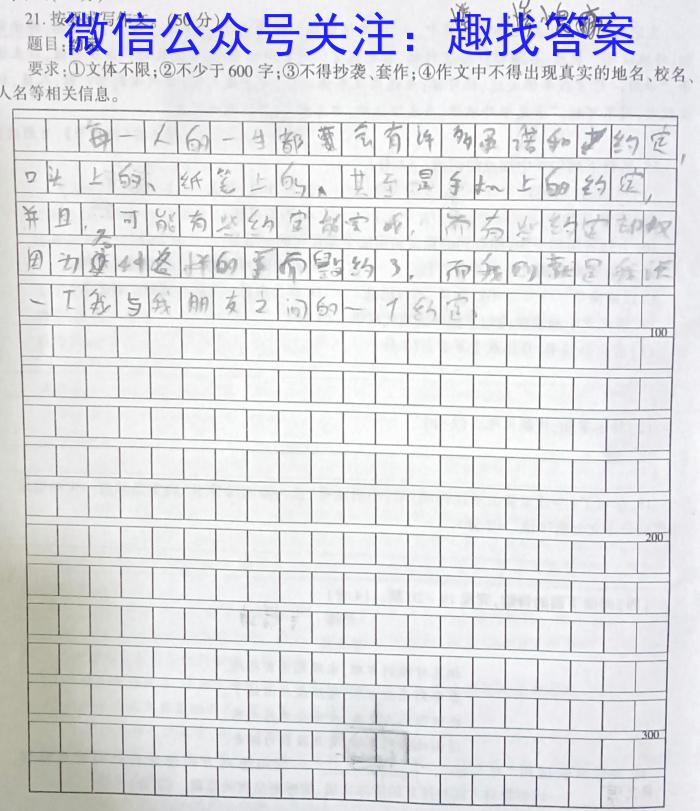 21.按要求写作文。(50分)
微信公众号关注：趣找答案
题目：约定
要求：①文体不限；②不少于600字；③不得抄袭、套作；④作文中不得出现真实的地名、校名、
人名等相关信息。
每一人的一生都要会有许多承诺和约定，
口头上的、纸笔上的、甚至是手机上的约定，
并且，可能有些约定能完成，而有些约定却
因为各种各样的事而毁约了，而我
一个我与我朋友之间的一个约定
100
200
300